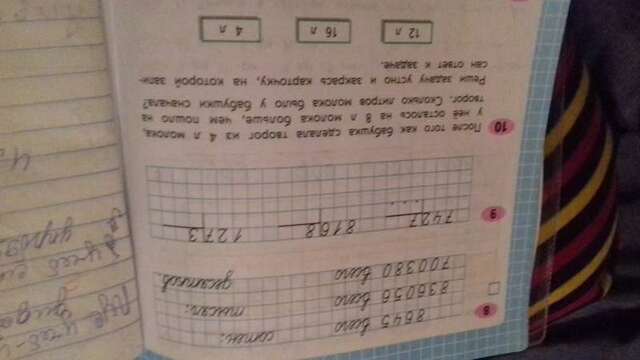 8
8645 всего сотен;
836056 всего тысяч;
700380 всего десятков.
9
742|7 816|8 127|3
. . .
10 После того как бабушка сделала творог из 4 л молока,
у неё осталось на 8 л молока больше, чем пошло на
творог. Сколько литров молока было у бабушки сначала?
Реши задачу устно и закрась карточку, на которой запи-
сан ответ к задаче.
12 л 16 л 4 л